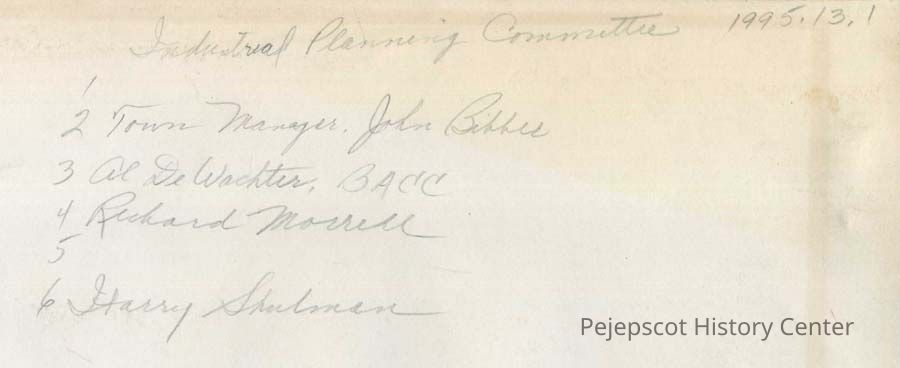 Industrial Planning Committee 1995.13.1
1
2 Town Manager, John Bibber
3 Al DeWachter, BACC
4 Richard Morrell
5
6 Harry Shulman
Pejepscot History Center